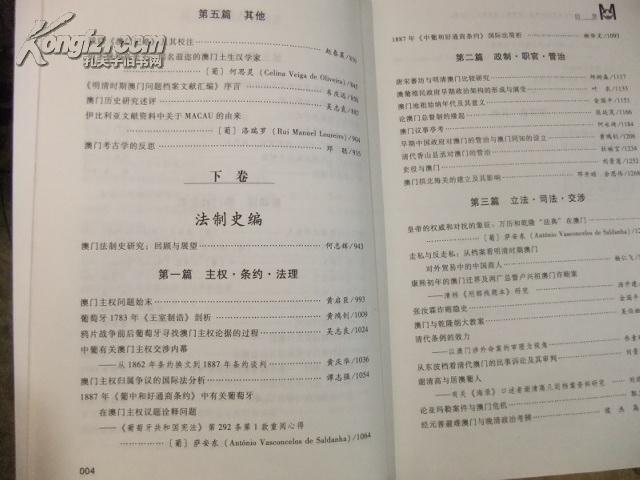 Kongfz.com
孔夫子旧书网
第五篇 其他
其校注 赵春晨/836
名葡迤的澳门土生汉学家
[葡] 何思灵 (Celina Veiga de Oliveira)/845
《明清时期澳门问题档案文献汇编》序言 韦庆远/850
澳门历史研究述评 吴志良/882
伊比利亚文献资料中关于 MACAU 的由来
[葡] 洛瑞罗 (Rui Manuel Loureiro)/904
澳门考古学的反思 邓聪/915
下 卷
法制史编
澳门法制史研究:回顾与展望 何志辉/943
第一篇 主权·条约·法理
澳门主权问题始末 黄启臣/993
葡萄牙 1783 年《王室制诰》剖析 黄鸿钊/1009
鸦片战争前后葡萄牙寻找澳门主权论据的过程 吴志良/1024
中葡有关澳门主权交涉内幕
——从 1862 年条约换文到 1887 年条约谈判 黄庆华/1036
澳门主权归属争议的国际法分析 谭志强/1054
1887 年《葡中和好通商条约》中有关葡萄牙
在澳门主权议题诠释问题
——《葡萄牙共和国宪法》第 292 条第 1 款重阅心得
[葡] 萨安东 (António Vasconcelos de Saldanha)/1064
004
目录
1887 年《中葡和好通商条约》国际法简析 柳华文/1093
第二篇 政制·职官·管治
唐宋蕃坊与明清澳门比较研究
澳葡殖民政府早期政治架构的形成与演变 叶农
澳门地租始纳年代及其意义 金国平
论澳门总督制的缘起
澳门议事亭考
早期中国政府对澳门的管治与澳门同知的设立 黄鸿钊
清代香山县丞对澳门的管治
史役与澳门 刘景莲
澳门拱北海关的建立及其影响 邓开颂
第三篇 立法·司法·交涉
皇帝的权威和对抗的象征:万历和乾隆“法典”在澳门
[葡] 萨安东 (António Vasconcelos de Saldanha)
走私与反走私:从档案看明清时期澳门
对外贸易中的中国商人 杨仁飞
康熙初年的澳门迁界及两广总督卢兴祖澳门诈贿案
——清档《刑部残题本》研究
张汝霖诈贿隐史
澳门与乾隆朝大教案
清代条例的效力
——以澳门涉外命案的审理为视角
从东波档看清代澳门的民事诉讼及其审判 刘景莲
谢清高与居澳葡人
——有关《海录》口述者谢清高几则档案资料研究 刘
论亚玛勒案件与澳门危机
经元善避难澳门与晚清政治考辨